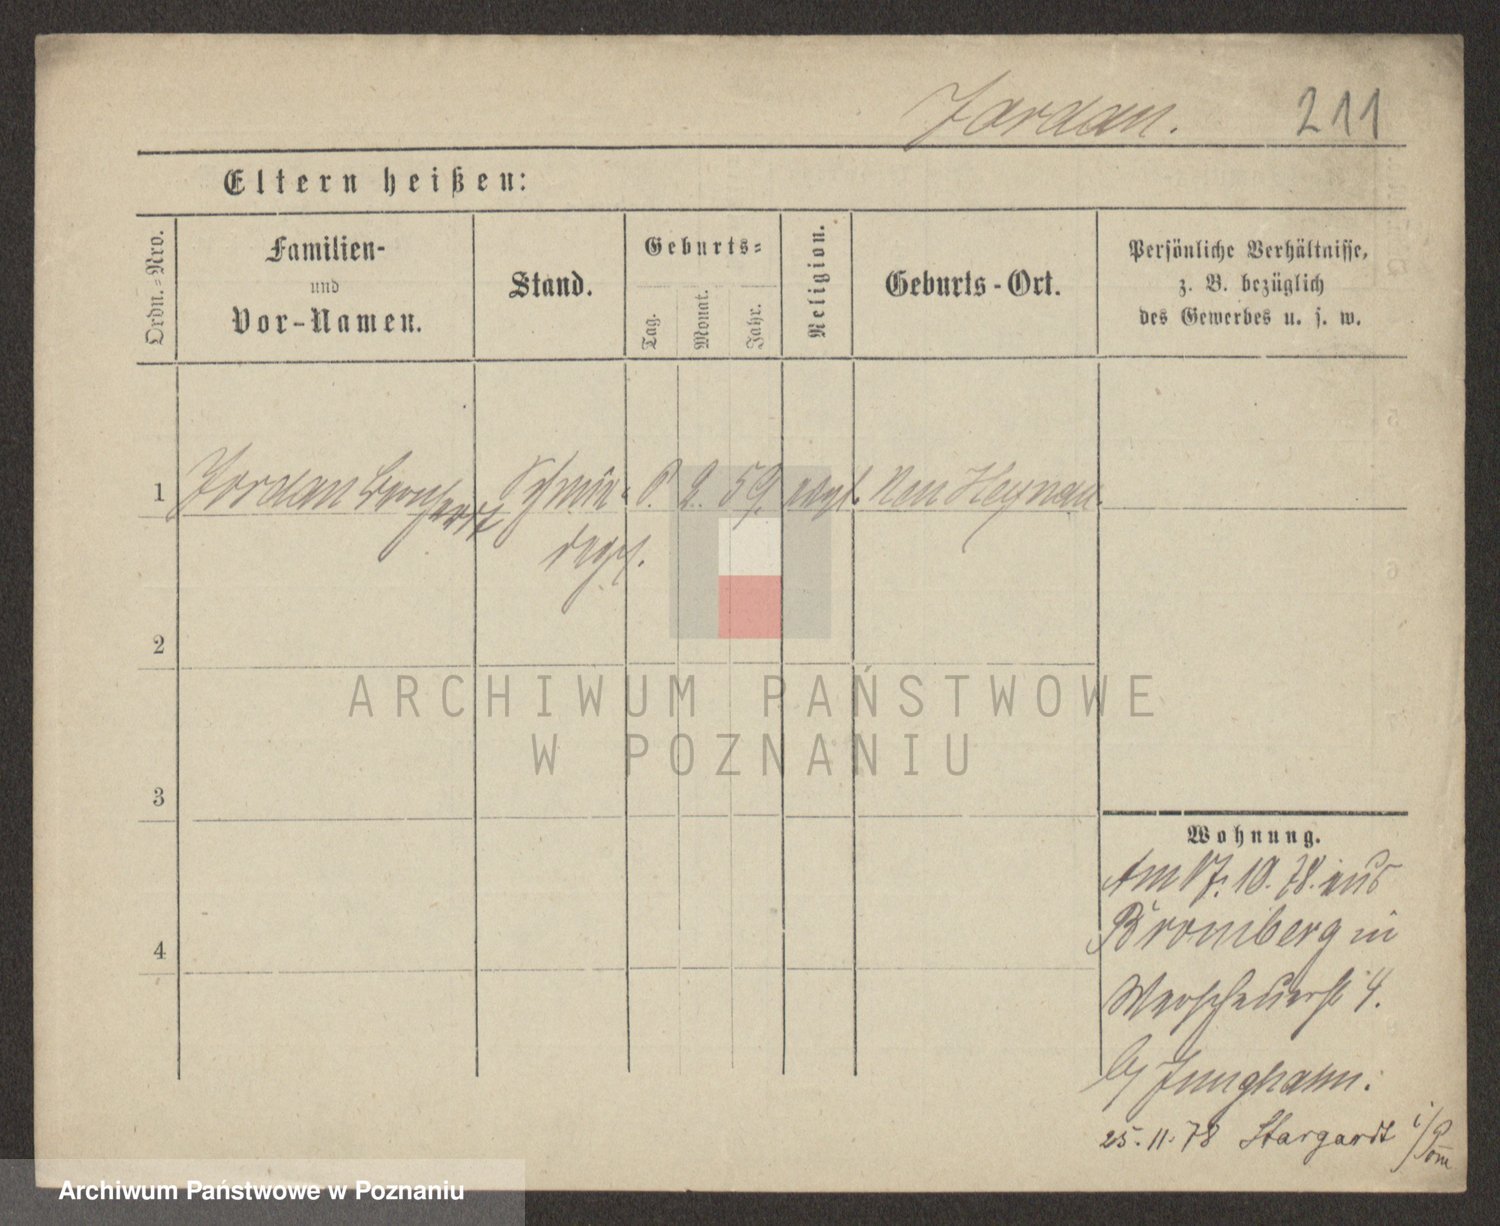 Jordan. 211
Eltern heißen:
Ordn.-Nro.
Familien-
und
Vor-Namen.
Stand.
Geburts-
Tag.
Monat.
Jahr.
Religion.
Geburts-Ort.
Persönliche Verhältnisse,
z. B. bezüglich
des Gewerbes u. s. w.
1 Jordan Schmie- 8. 2. 59. evgl. Neu
degs.
2
3
4
Wohnung.
Am 17. 10. 78. aus
Bromberg in
4.
b/ Junghann.
25. 11. 78 Stargardt i/Pom
ARCHIWUM PAŃSTWOWE
W POZNANIU
Archiwum Państwowe w Poznaniu